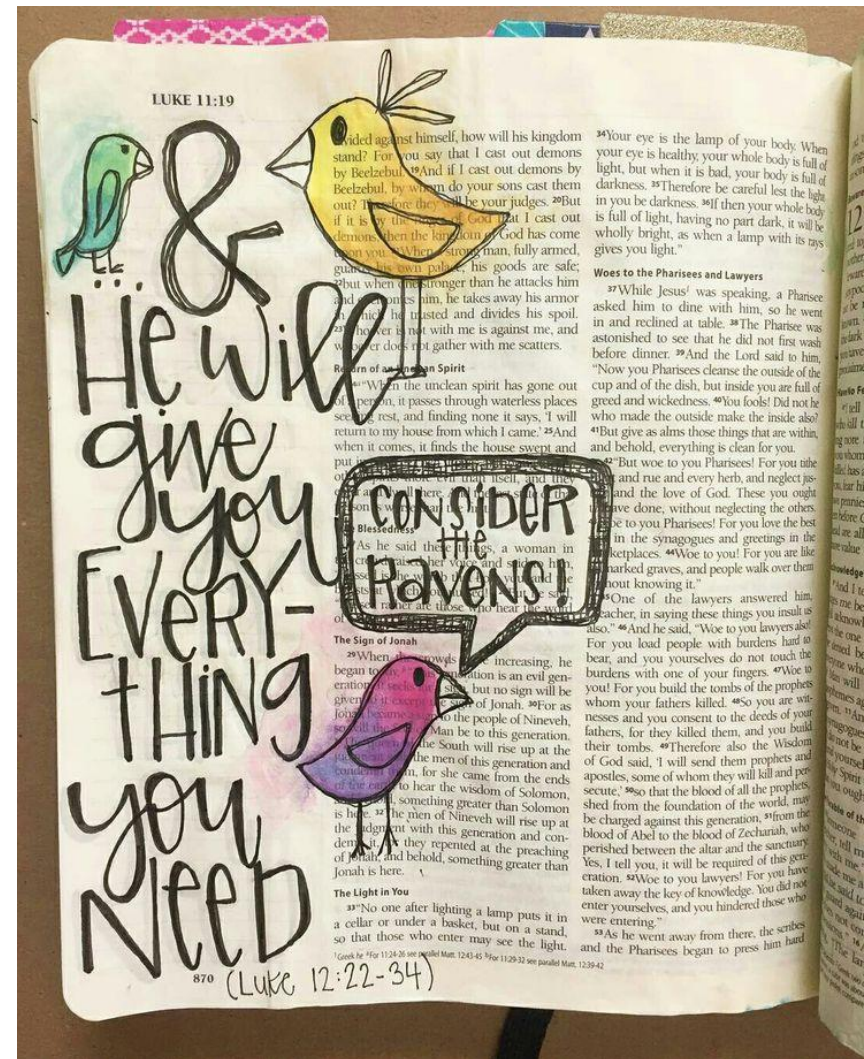 LUKE 11:19
&
He will
give
you
EVERY-
tHING
you
NeeD
(Luke 12:22-34)
870
CONSIDeR
the
RAVeNS!
vided against himself, how will his kingdom
stand? For you say that I cast out demons
by Beelzebul. 19And if I cast out demons by
Beelzebul, by whom do your sons cast them
out? Therefore they will be your judges. 20But
if it is by the of God that I cast out
demons, then the kingdom of God has come
upon you. When a strong man, fully armed,
guards his own palace, his goods are safe;
22but when one stronger than he attacks him
and overcomes him, he takes away his armor
in which he trusted and divides his spoil.
23Whoever is not with me is against me, and
whoever does not gather with me scatters.
Return of an Unclean Spirit
"When the unclean spirit has gone out
of a person, it passes through waterless places
seeking rest, and finding none it says, 'I will
return to my house from which I came.' 25And
when it comes, it finds the house swept and
put
evil than itself, and they
Blessedness
As he said these things, a woman in
rather are those who hear the word
of
The Sign of Jonah
29When the crowds were increasing, he
began to generation is an evil gen-
eration. It seeks for a sign, but no sign will be
given to it except the sign of Jonah. 30For as
Jonah became to the people of Nineveh,
so will the Man be to this generation.
the South will rise up at the
the men of this generation and
condemn them, for she came from the ends
of the earth to hear the wisdom of Solomon,
and behold, something greater than Solomon
is here. 32The men of Nineveh will rise up at
the judgment with this generation and con-
demn it, for they repented at the preaching
of Jonah, and behold, something greater than
Jonah is here.
The Light in You
33"No one after lighting a lamp puts it in
a cellar or under a basket, but on a stand,
so that those who enter may see the light.
34Your eye is the lamp of your body. When
your eye is healthy, your whole body is full of
light, but when it is bad, your body is full of
darkness. 35Therefore be careful lest the light
in you be darkness. 36If then your whole body
is full of light, having no part dark, it will be
wholly bright, as when a lamp with its rays
gives you light."
Woes to the Pharisees and Lawyers
37While Jesus¹ was speaking, a Pharisee
asked him to dine with him, so he went
in and reclined at table. 38The Pharisee was
astonished to see that he did not first wash
before dinner. 39And the Lord said to him,
"Now you Pharisees cleanse the outside of the
cup and of the dish, but inside you are full of
greed and wickedness. 40You fools! Did not he
who made the outside make the inside also?
41But give as alms those things that are within,
and behold, everything is clean for you.
42"But woe to you Pharisees! For you tithe
and rue and every herb, and neglect jus-
and the love of God. These you ought
have done, without neglecting the others.
to you Pharisees! For you love the best
in the synagogues and greetings in the
marketplaces. 44Woe to you! For you are like
unmarked graves, and people walk over them
without knowing it."
45One of the lawyers answered him,
"Teacher, in saying these things you insult us
also." 46And he said, "Woe to you lawyers also!
For you load people with burdens hard to
bear, and you yourselves do not touch the
burdens with one of your fingers. 47Woe to
you! For you build the tombs of the prophets
whom your fathers killed. 48So you are wit-
nesses and you consent to the deeds of your
fathers, for they killed them, and you build
their tombs. 49Therefore also the Wisdom
of God said, 'I will send them prophets and
apostles, some of whom they will kill and per-
secute,' 50so that the blood of all the prophets,
shed from the foundation of the world, may
be charged against this generation, 51from the
blood of Abel to the blood of Zechariah, who
perished between the altar and the sanctuary.
Yes, I tell you, it will be required of this gen-
eration. 52Woe to you lawyers! For you have
taken away the key of knowledge. You did not
enter yourselves, and you hindered those who
were entering."
53As he went away from there, the scribes
and the Pharisees began to press him hard
¹Greek he ²For 11:24-26 see parallel Matt. 12:43-45 ³For 11:29-32 see parallel Matt. 12:39-42
12